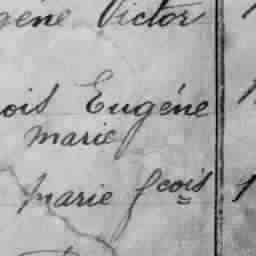 gène Victor
ois Eugéne
marie
marie fcois